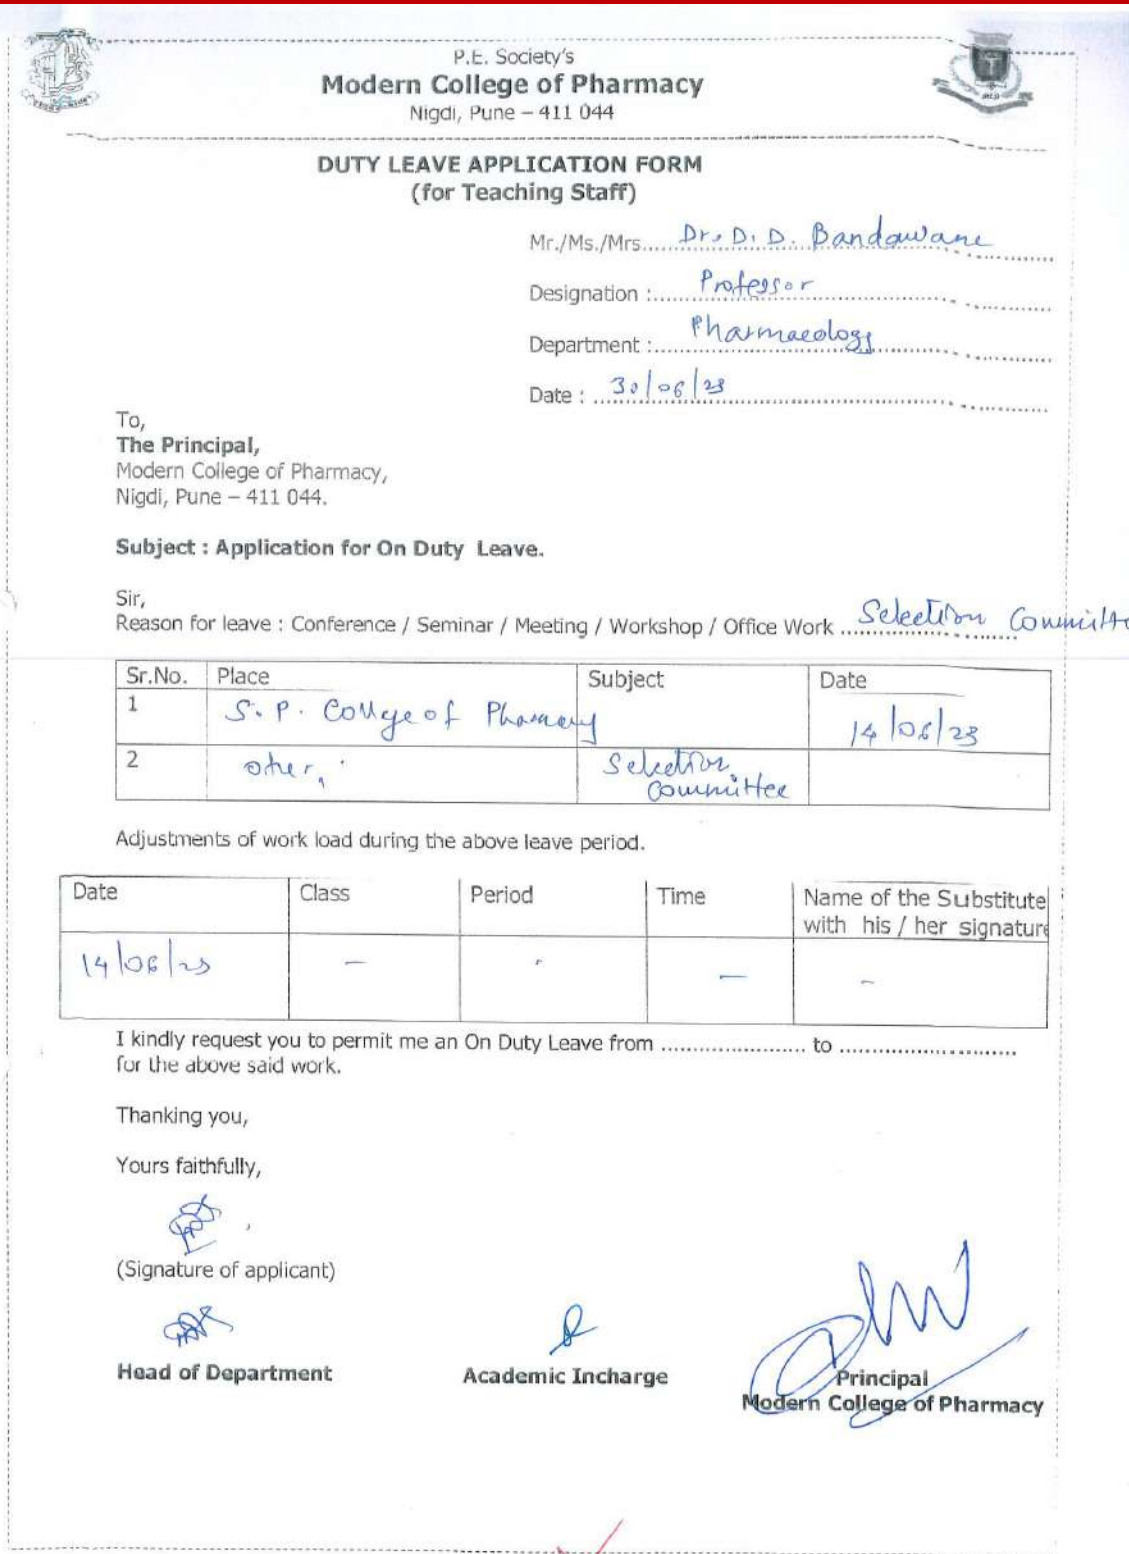 P.E. Society's
Modern College of Pharmacy
Nigdi, Pune – 411 044
DUTY LEAVE APPLICATION FORM
(for Teaching Staff)
Mr./Ms./Mrs..... Dr. D. D. Bandawane
Designation :..... Professor
Department :..... Pharmacology
Date : ..... 30/06/23
To,
The Principal,
Modern College of Pharmacy,
Nigdi, Pune – 411 044.
Subject : Application for On Duty Leave.
Sir,
Reason for leave : Conference / Seminar / Meeting / Workshop / Office Work ..... Selection Committe
Sr.No. Place Subject Date
1 S. P. College of Pharmacy 14/06/23
2 Selection
Committee
Adjustments of work load during the above leave period.
Date Class Period Time Name of the Substitute
with his / her signature
14/06/23 – – – –
I kindly request you to permit me an On Duty Leave from ........................ to ..............................
for the above said work.
Thanking you,
Yours faithfully,
(Signature of applicant)
Head of Department Academic Incharge Principal
Modern College of Pharmacy